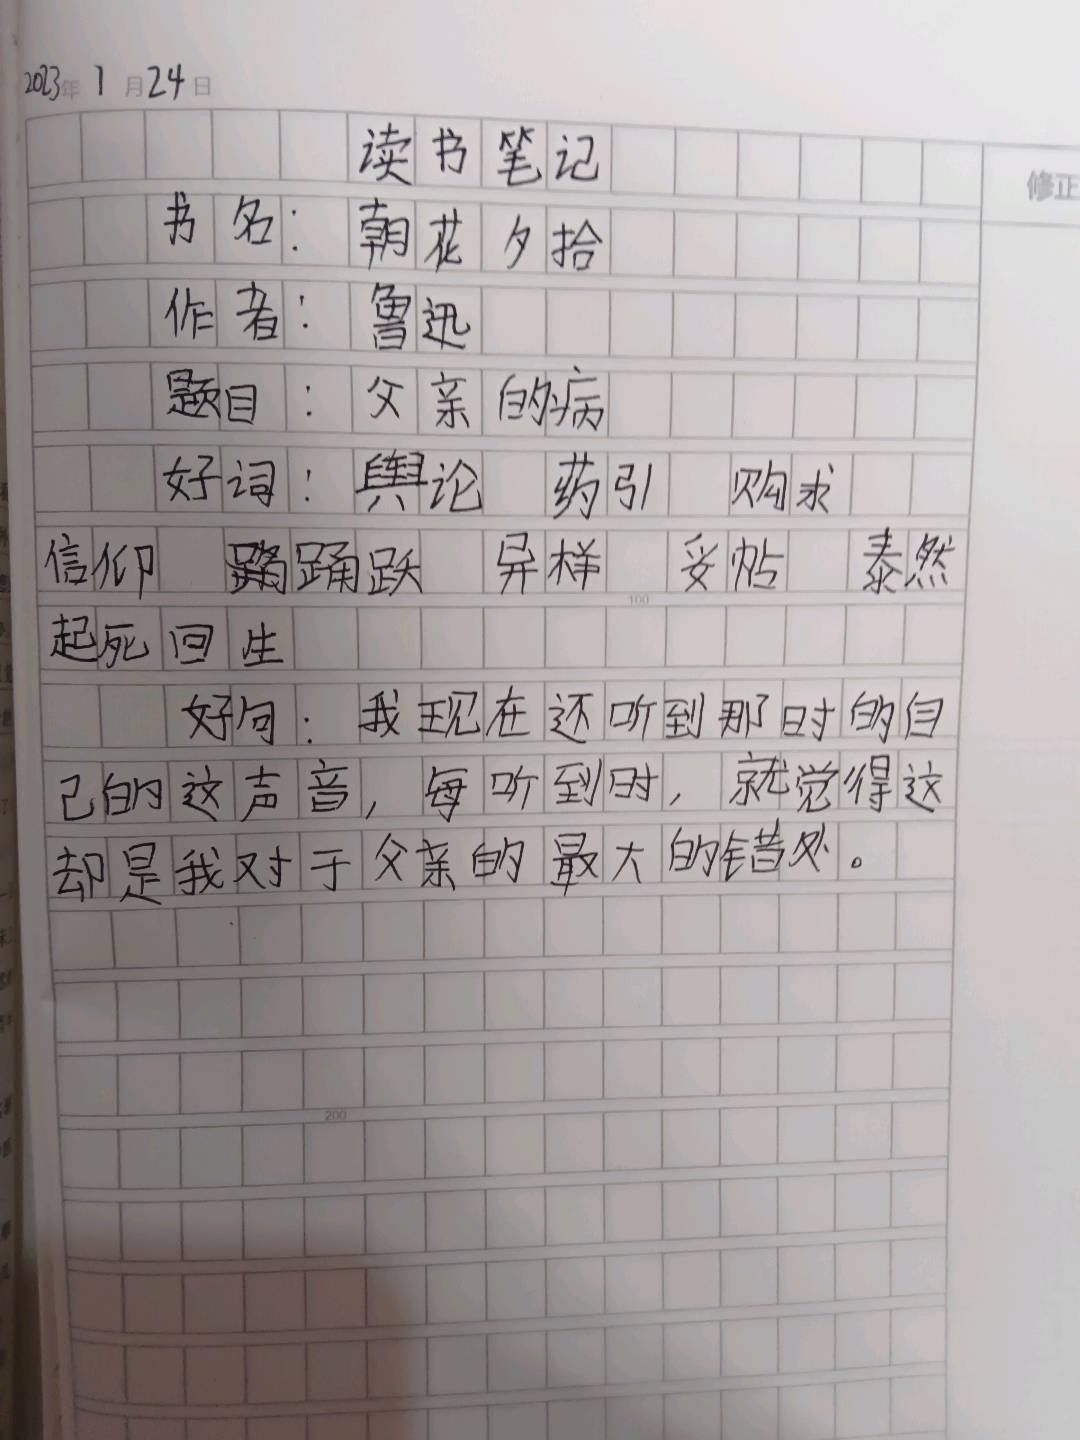 2023年 1月24日
读书笔记
修正
书名：朝花夕拾
作者：鲁迅
题目：父亲的病
好词：舆论 药引 购求
信仰 踊跃 异样 妥帖 泰然
100
起死回生
好句：我现在还听到那时的自
己的这声音，每听到时，就觉得这
却是我对于父亲的最大的错处。
200